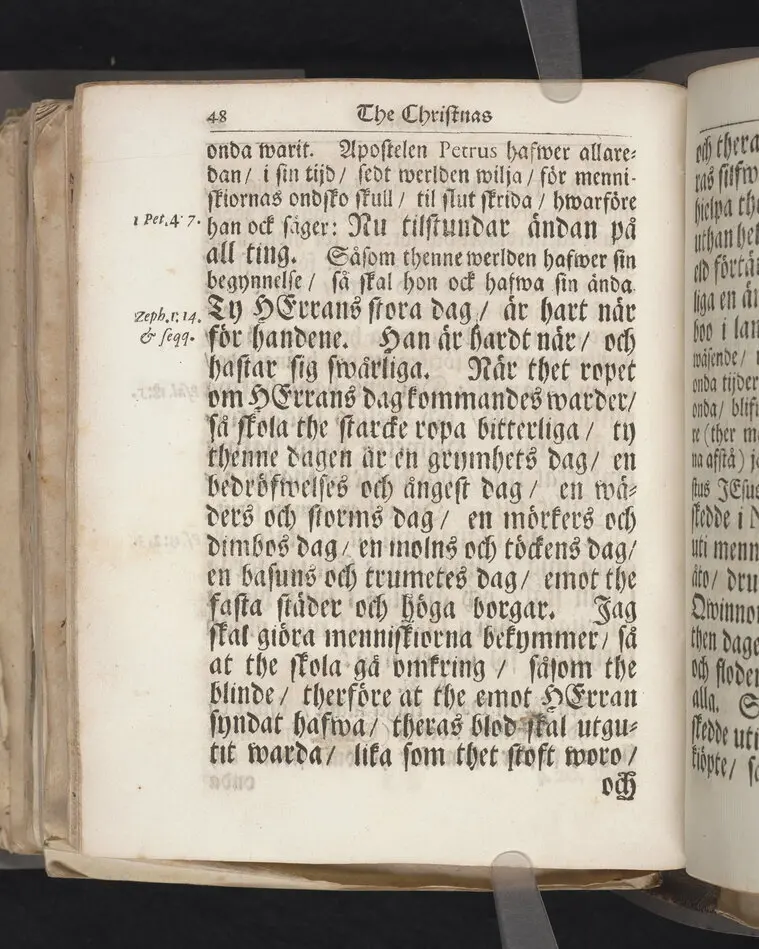 48 The Christnas
onda warit. Apostelen Petrus hafwer allare=
dan / i sin tijd / sedt werlden wilja / för menni-
skiornas ondsko skull / til slut skrida / hwarföre
1 Pet. 4. 7. han ock säger: Nu tilstundar ändan på
all ting. Såsom thenne werlden hafwer sin
begynnelse / så skal hon ock hafwa sin ända.
Zeph. 1. 14. Ty HErrans stora dag / är hart när
& seqq. för handene. Han är hardt när / och
hastar sig swårliga. När thet ropet
om HErrans dag kommandes warder /
så skola the starcke ropa bitterliga / ty
thenne dagen är en grymhets dag / en
bedröfwelses och ångest dag / en wä=
ders och storms dag / en mörkers och
dimbos dag / en molns och töckens dag /
en basuns och trumetes dag / emot the
fasta städer och höga borgar. Jag
skal giöra menniskiorna bekymmer / så
at the skola gå omkring / såsom the
blinde / therföre at the emot HErran
syndat hafwa / theras blod skal utgu=
tit warda / lika som thet stoft woro /
och
och thera
ras silfw
hielpa th
uthan hel
eld förtä
liga en än
boo i lan
wäsende /
onda tijder
onda / blif
re (ther m
na afstå) j
stus JEsu
skedde i N
uti menn
åto / dru
Qwinno
then dage
och floder
alla. S
skedde uti
kiöpte / så